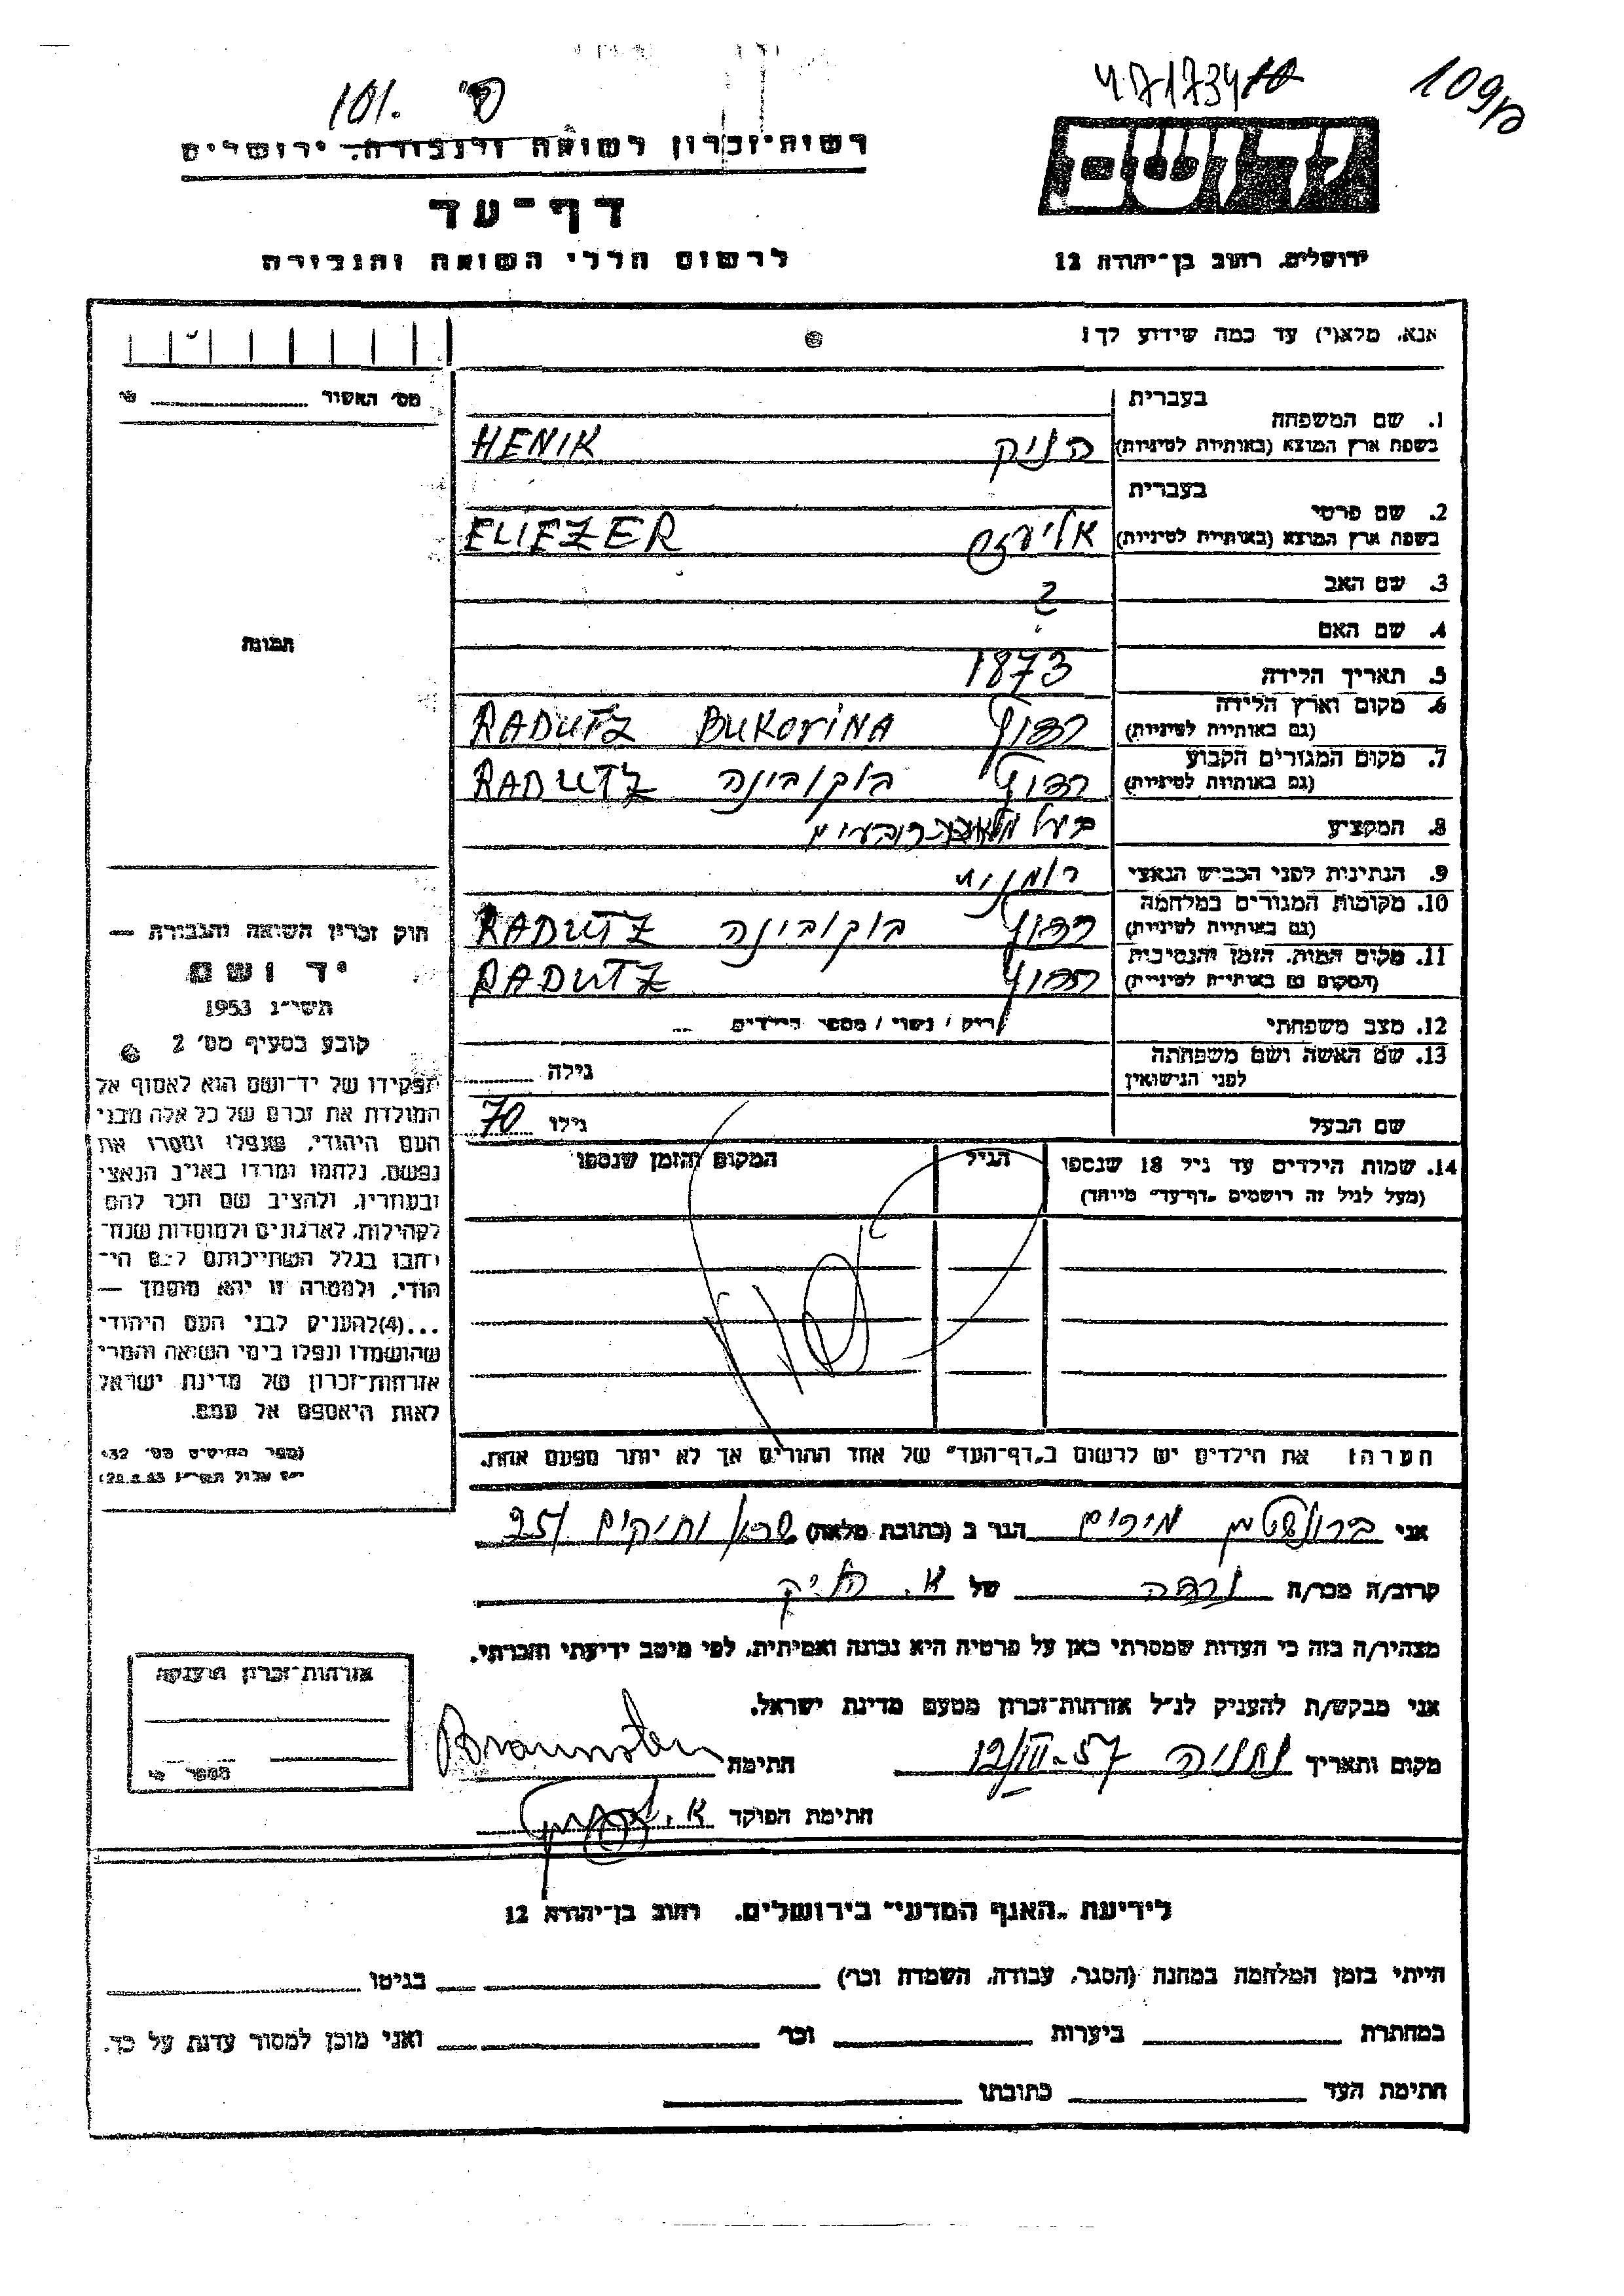 101.
109
רשות-זכרון לשואה ולגבורה, ירושלים
דף-עד
לרשום חללי השואה והגבורה
יד ושם
ירושלים, רחוב בן-יהודה 12
אנא, מלא(י) עד כמה שידוע לך!
מס׳ האשור
בעברית
1. שם המשפחה
בשפת ארץ המוצא (באותיות לטיניות)
הניק HENIK
בעברית
2. שם פרטי
בשפת ארץ המוצא (באותיות לטיניות)
אליעזר ELIEZER
3. שם האב ?
4. שם האם
5. תאריך הלידה 1873
6. מקום וארץ הלידה
(גם באותיות לטיניות)
רדוץ RADUTZ BUKOVINA
7. מקום המגורים הקבוע
(גם באותיות לטיניות)
רדוץ בוקובינה RADUTZ
8. המקצוע בעל
9. הנתינות לפני הכבוש הנאצי רומנית
10. מקומות המגורים במלחמה
(גם באותיות לטיניות)
רדוץ בוקובינה RADUTZ
11. מקום המות, הזמן והנסיבות
(המקום גם באותיות לטיניות)
רדוץ RADUTZ
12. מצב משפחתי רווק / נשוי / מספר הילדים
13. שם האשה ושם משפחתה
לפני הנישואין
גילה
שם הבעל גילו 70
14. שמות הילדים עד גיל 18 שנספו
(מעל לגיל זה רושמים "דף-עד" מיוחד)
הגיל
המקום והזמן שנספו
הערה: את הילדים יש לרשום ב"דף-העד" של אחד ההורים אך לא יותר מפעם אחת.
תמונה
חוק זכרון השואה והגבורה —
יד ושם
תשי״ג 1953
קובע בסעיף מס׳ 2
תפקידו של יד-ושם הוא לאסוף אל
המולדת את זכרם של כל אלה מבני
העם היהודי, שנפלו ומסרו את
נפשם, נלחמו ומרדו באויב הנאצי
ובעוזריו, ולהציב שם וזכר להם
לקהילות, לארגונים ולמוסדות שנח-
רבו בגלל השתייכותם לעם הי-
הודי, ולמטרה זו יהא מוסמך —
...(4)להעניק לבני העם היהודי
שהושמדו ונפלו בימי השואה והמרי
אזרחות-זכרון של מדינת ישראל
לאות היאספם אל עמם.
אני ברונשטין מרים הגר ב (כתובת מלאה) ותיקים 25
קרוב/ה מכר/ה נכדה של א. הניק
מצהיר/ה בזה כי העדות שמסרתי כאן על פרטיה היא נכונה ואמיתית, לפי מיטב ידיעתי והכרתי.
אני מבקש/ת להעניק לנ״ל אזרחות-זכרון מטעם מדינת ישראל.
מקום ותאריך נתניה 12/III-57 חתימה Braunsten
חתימת הפוקד
אזרחות-זכרון הוענקה
מספר
לידיעת "האגף המדעי" בירושלים, רחוב בן-יהודה 12
הייתי בזמן המלחמה במחנה (הסגר, עבודה, השמדה וכו׳) בגיטו
במחתרת ביערות וכו׳ ואני מוכן למסור עדות על כך.
חתימת העד כתובתו